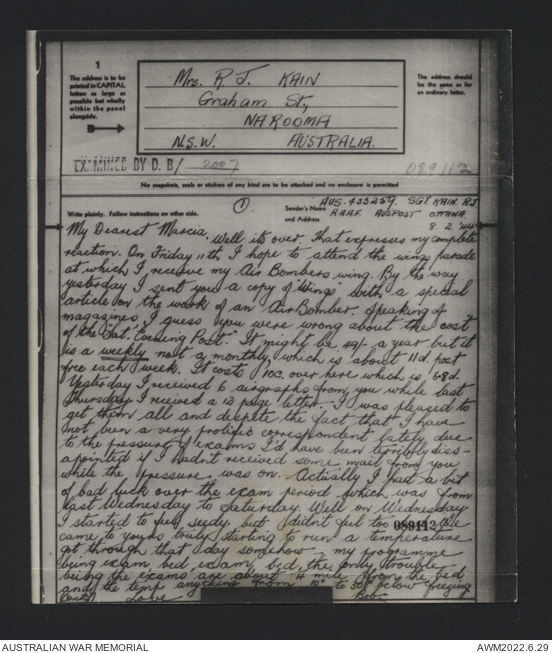 1
The address is to be
printed in CAPITAL
letters as large as
possible but wholly
within the panel
alongside.
Mrs. R J. KAIN
Graham St,
NAROOMA
N.S.W. AUSTRALIA.
The address should
be the same as for
an ordinary letter.
EXAMINED BY D.B/ 2007
089113
No snapshots, seals or stickers of any kind are to be attached and no enclosure is permitted
Write plainly. Follow instructions on other side.
①
Sender's Name
and Address
AUS. 433259. SGT. KAIN. RJ
R.A.A.F. AUSPOST OTTAWA.
8. 2. '44
My Dearest Marcia,
Well its over. That expresses my complete
reaction. On Friday 11th, I hope to attend the wings parade
at which I receive my Air Bombers wing. By the way
yesterday I sent you a copy of "Wings" with a special
article on the work of an Air Bomber. Speaking of
magazines, I guess you were wrong about the cost
of the "Sat. Evening Post." It might be 44/- a year but it
is a weekly not a monthly, which is about 11d. post
free each week. It costs 10c. over here which is 6.8d.
Yesterday I received 6 airgraphs from you while last
Thursday I received a 12 page letter. I was pleased to
get them all and despite the fact that I have
not been a very prolific correspondent lately due
to the pressure of exams I'd have been terribly dis-
apointed if I hadn't received some mail from you
while the pressure was on. Actually I had a bit
of bad luck over the exam period which was from
last Wednesday to Saturday. Well on Wednesday
I started to feel seedy but I didn't feel too
089113
came to yours truly starting to run a temperature
got through that day somehow - my programme
being exam, bed, exam, bed, the only trouble
being the exams are about ¼ mile from the bed
and the temp. anything from 10° to 30° below freezing
(cont) Love Bob.
AUSTRALIAN WAR MEMORIAL
AWM2022.6.29